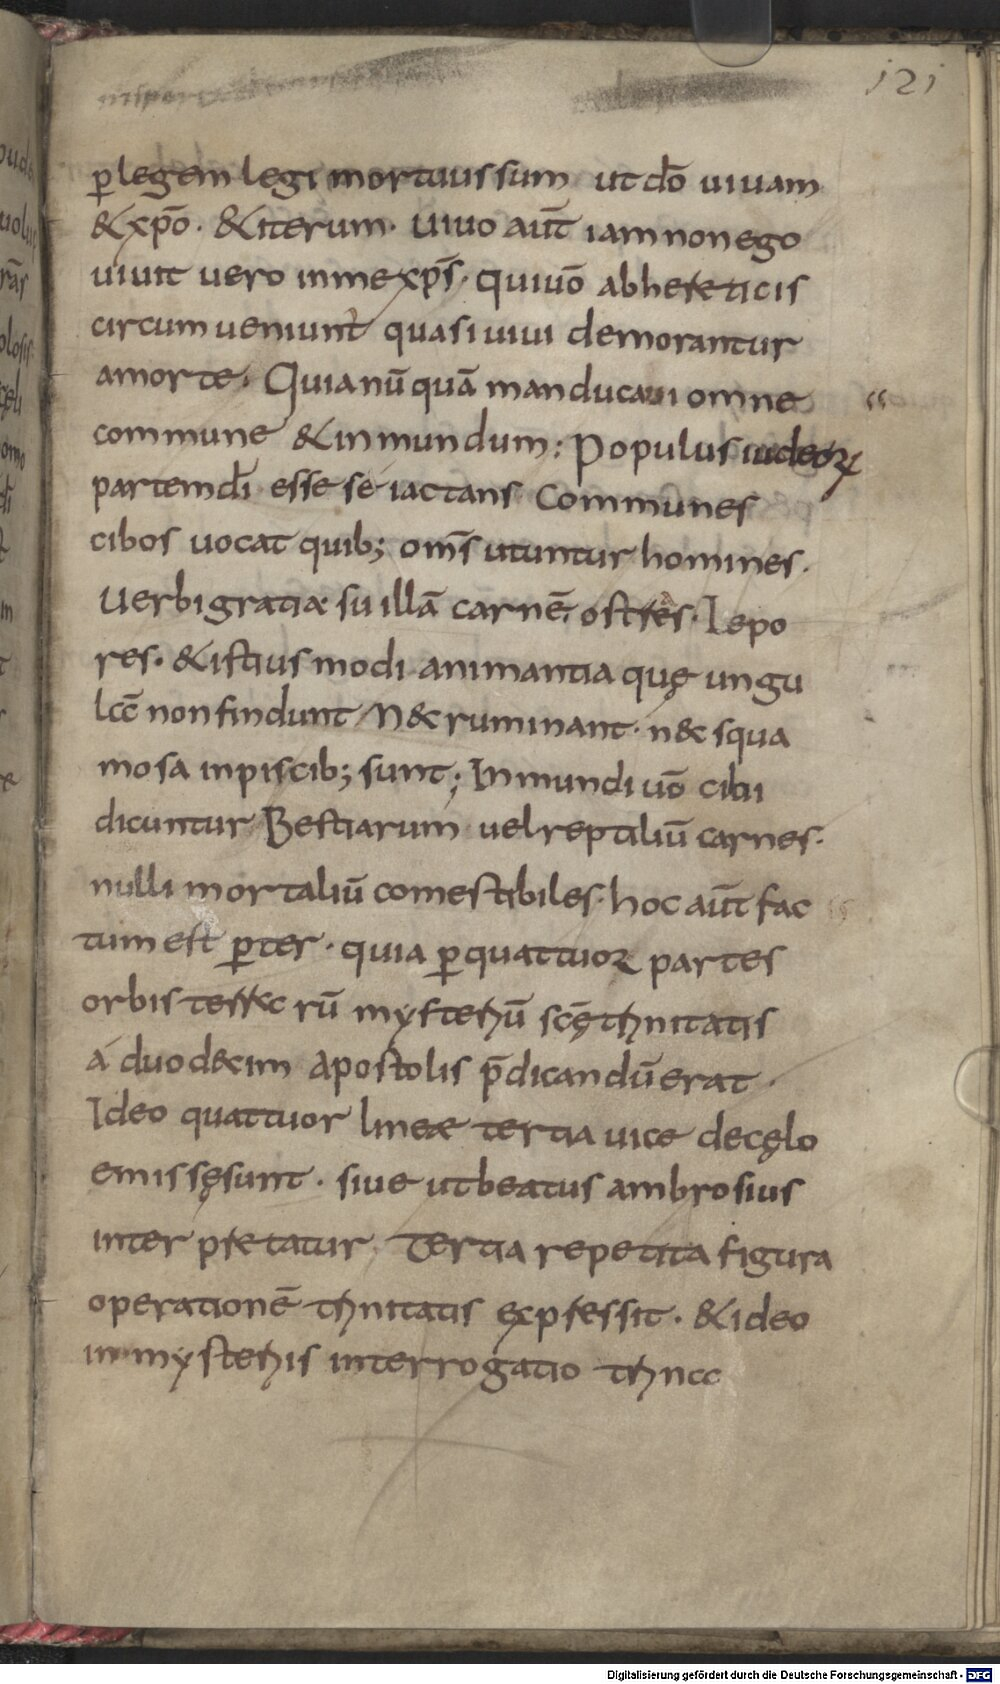 121
ꝑ legem legi mortuus sum ut dō uiuam
& xp̄o. & iterum. uiuo aūt iam non ego
uiuit uero in me xp̄s. Qui uō ab hereticis
circumueniunt quasi uiui demorantur
a morte. Quia nū quā manducaui omne
commune & inmundum; Populus iudeoꝝ
partem dī esse sé iactans Communes
cibos uocat quib; om̄s utuntur homines.
Uerbi gratiæ suillā carnē, ostres. Lepo
res. & istius modi animantia quę ungu
lā non findunt N& ruminant. n&c squa
mosa in piscib; sunt; Inmundi uō cibi
dicuntur Bestiarum uel reptiliū carnes.
nulli mortaliū comestibiles. hoc aūt fac
tum est ꝓter. quia ꝑ quattuor partes
orbis terrarū mysteriū scę trinitatis
á duodecim apostolis p̄dicandū erat.
Ideo quattuor lineæ tertia uice de cęlo
emissę sunt. siue ut beatus ambrosius
interpretatur Tertia repetita figura
operationē trinitatis expressit. & ideo
in mysteriis interrogatio trina
Digitalisierung gefördert durch die Deutsche Forschungsgemeinschaft - DFG